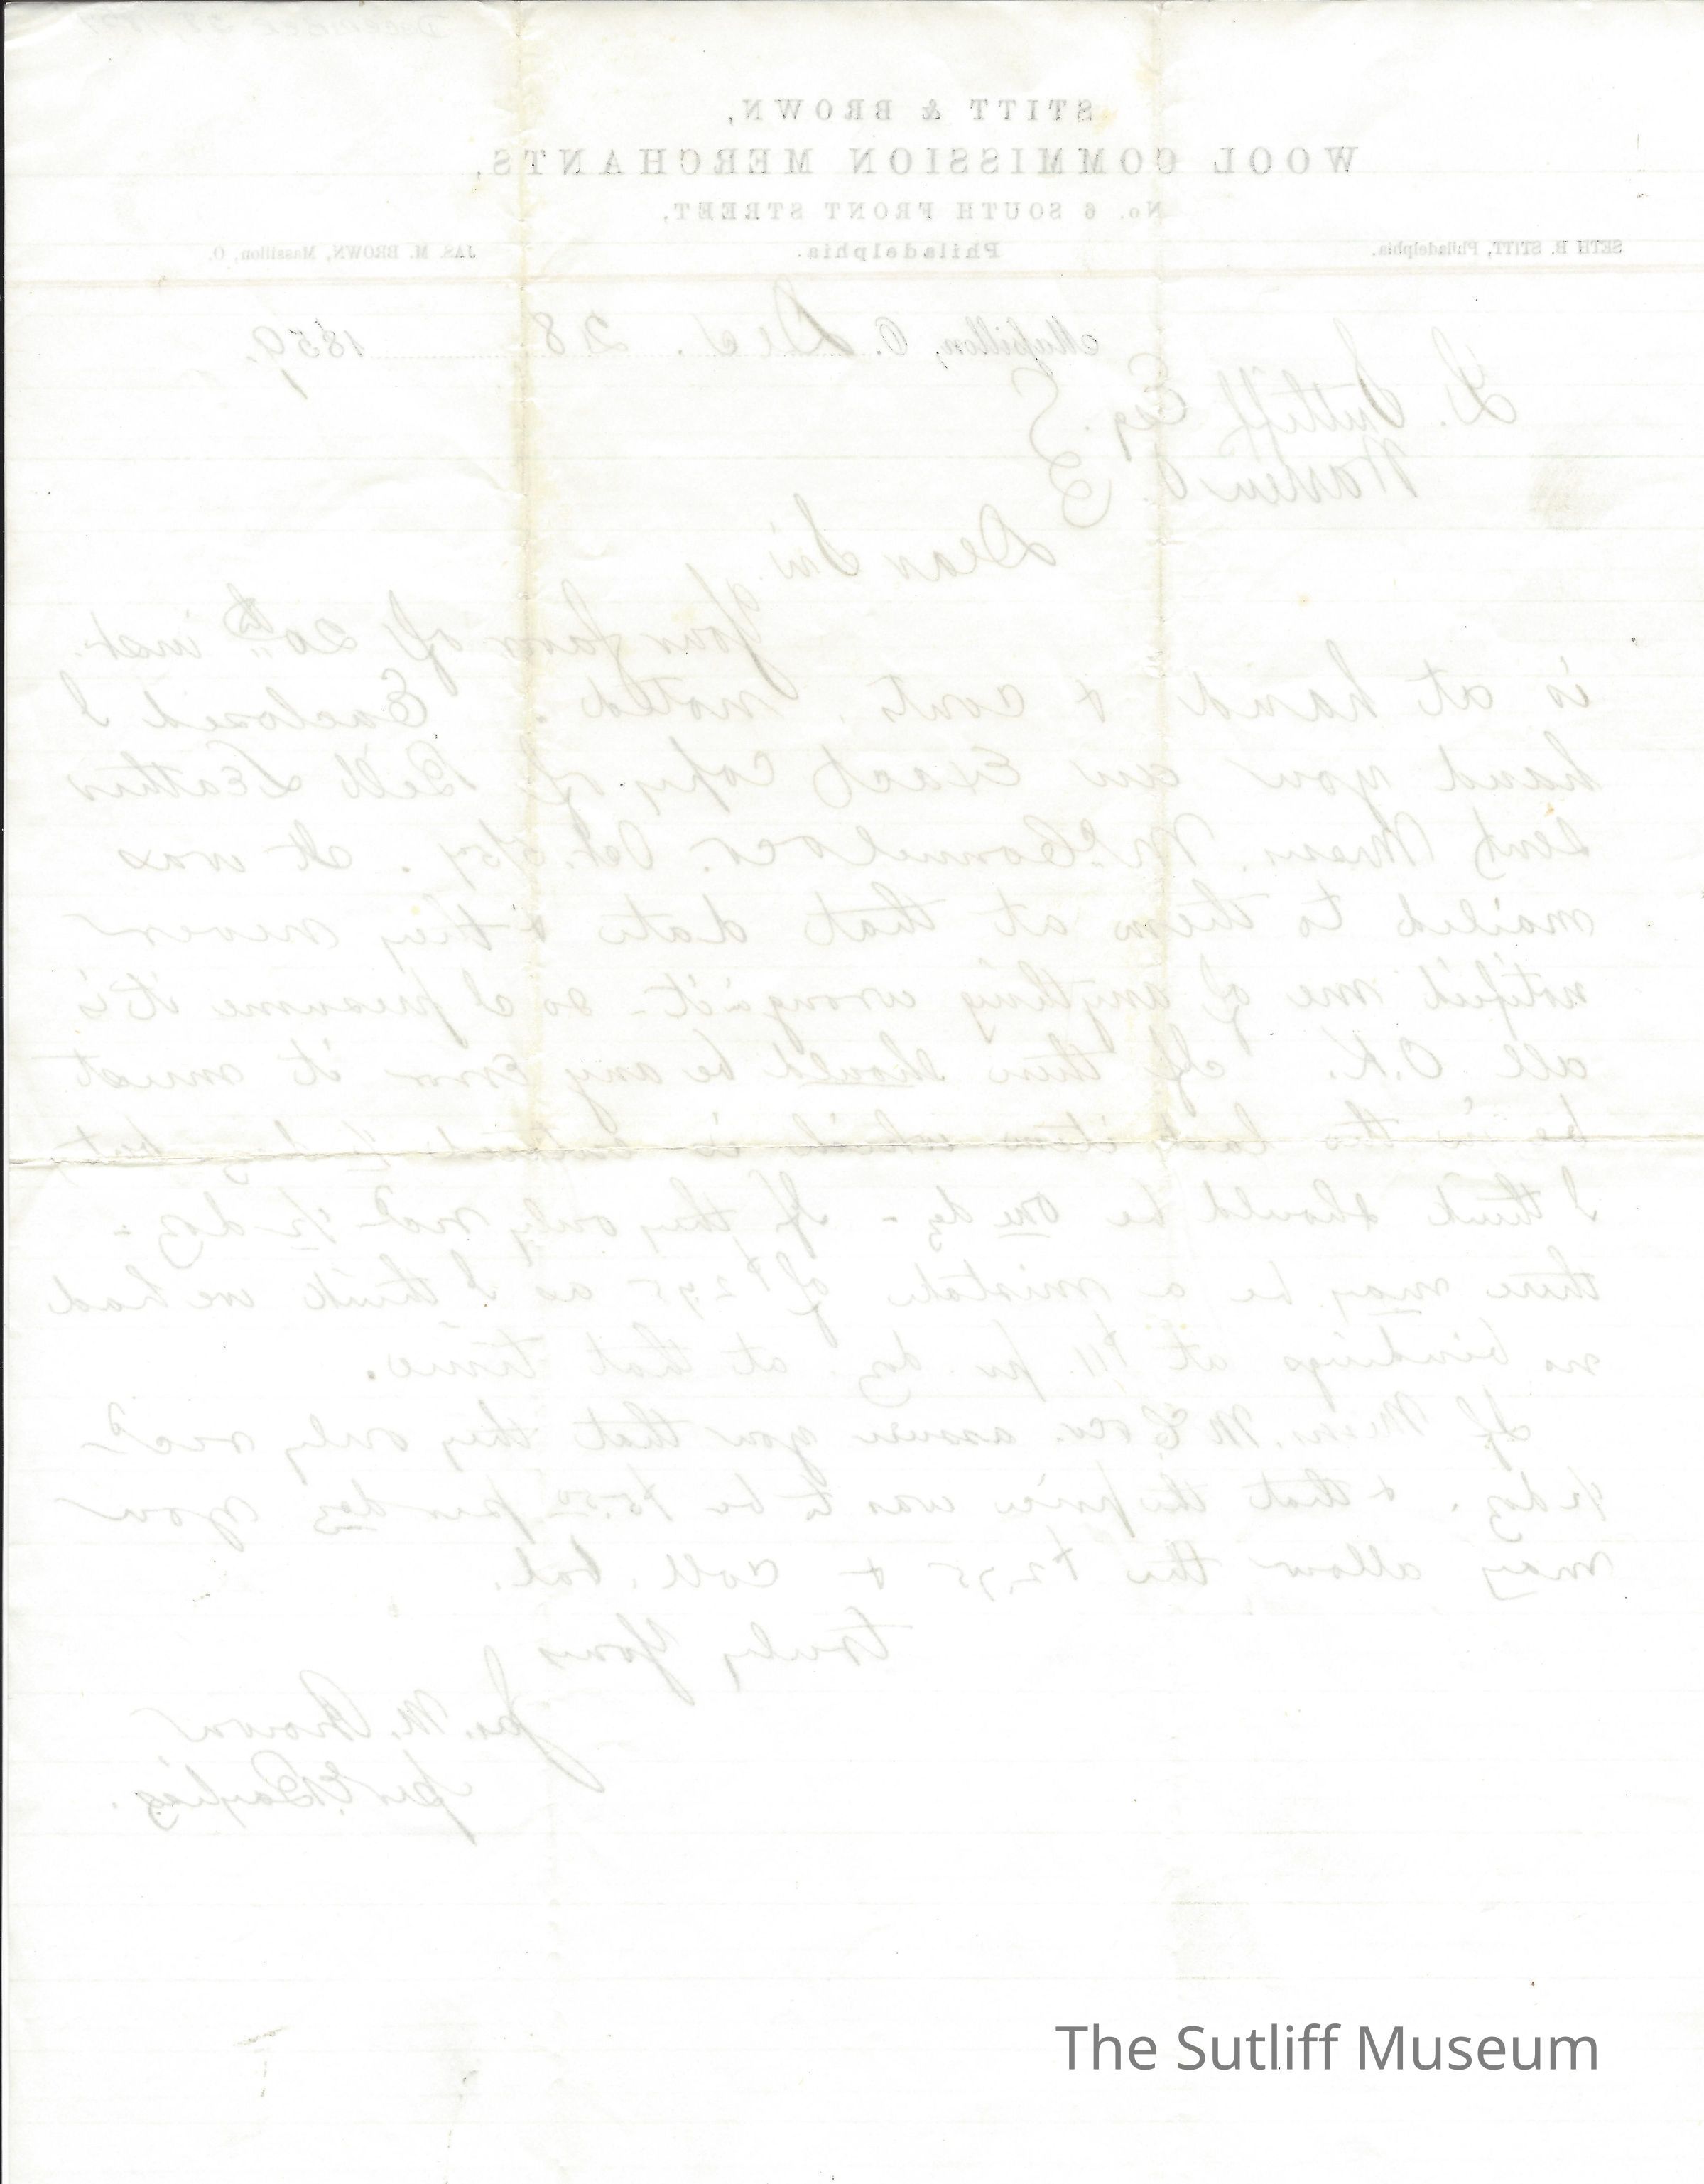 December 28, 1859
STITT & BROWN,
WOOL COMMISSION MERCHANTS,
No. 6 SOUTH FRONT STREET,
SETH B. STITT, Philadelphia. Philadelphia. JAS. M. BROWN, Massillon, O.
Massillon, O. Dec. 28 1859.
L. Sutliff Esq.
Warren O.
Dear Sir
Your favor of 20th inst.
is at hand & conts. noted. Enclosed I
hand you an Exact copy of Bill Leather
sent Messrs. McCo Oct. 5/57. It was
mailed to them at that date & they never
notified me of anything wrong - so I presume it is
all O.K. If there should be any error it must
be in the last item which is 1/2 doz. but
I think should be one dz - If they only recd 1/2 doz -
there may be a mistake of $2.75 as I think we had
no bindings at $11 pr doz. at that time.
If Messrs. McC assure you that they only recd
1/2 doz. & that the price was to be $5.50 per doz you
may allow the $2.75 & coll. bal.
truly Yours
Jas. M. Brown
per
The Sutliff Museum